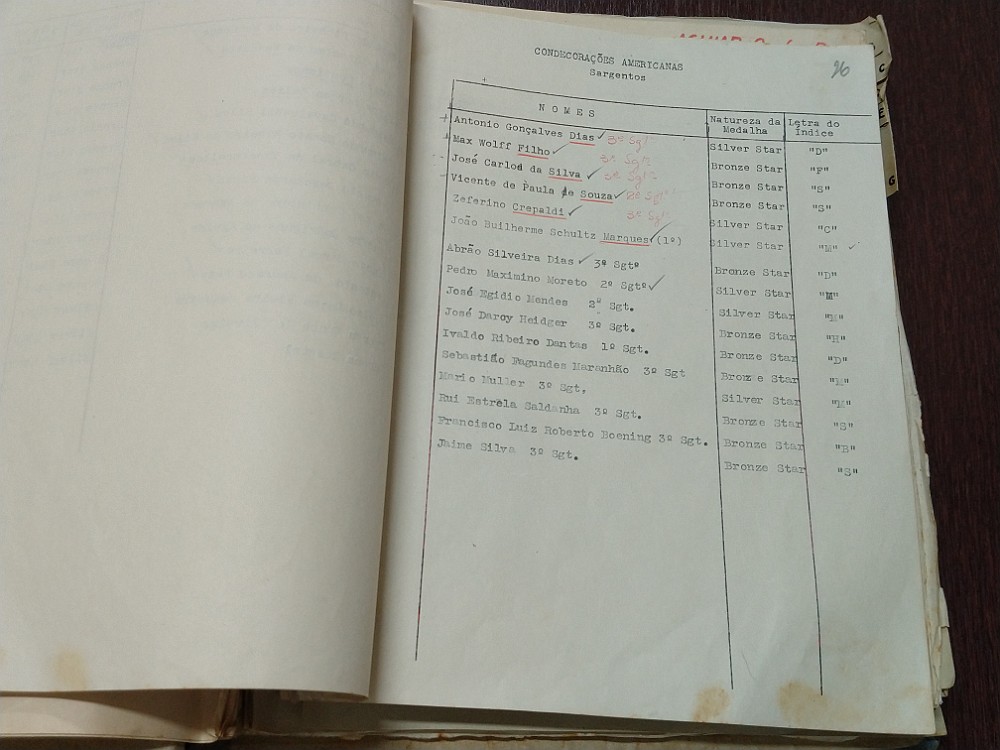 96
CONDECORAÇÕES AMERICANAS
Sargentos
N O M E S Natureza da Medalha Letra do Índice
Antonio Gonçalves Dias 3º Sgt. Silver Star "D"
Max Wolff Filho 3º Sgt. Bronze Star "F"
José Carlos da Silva 3º Sgt. Bronze Star "S"
Vicente de Paula de Souza Sgt. Bronze Star "S"
Zeferino Crepaldi 3º Sgt. Silver Star "C"
João Builherme Schultz Marques (1º) Silver Star "M"
Abrão Silveira Dias 3º Sgtº Bronze Star "D"
Pedro Maximino Moreto 2º Sgtº Silver Star "M"
José Egidio Mendes 2º Sgt. Silver Star "M"
José Darcy Heidger 3º Sgt. Bronze Star "H"
Ivaldo Ribeiro Dantas 1º Sgt. Bronze Star "D"
Sebastião Fagundes Maranhão 3º Sgt Bronze Star "M"
Mario Muller 3º Sgt, Silver Star "M"
Rui Estrêla Saldanha 3º Sgt. Bronze Star "S"
Francisco Luiz Roberto Boening 3º Sgt. Bronze Star "B"
Jaime Silva 3º Sgt. Bronze Star "S"